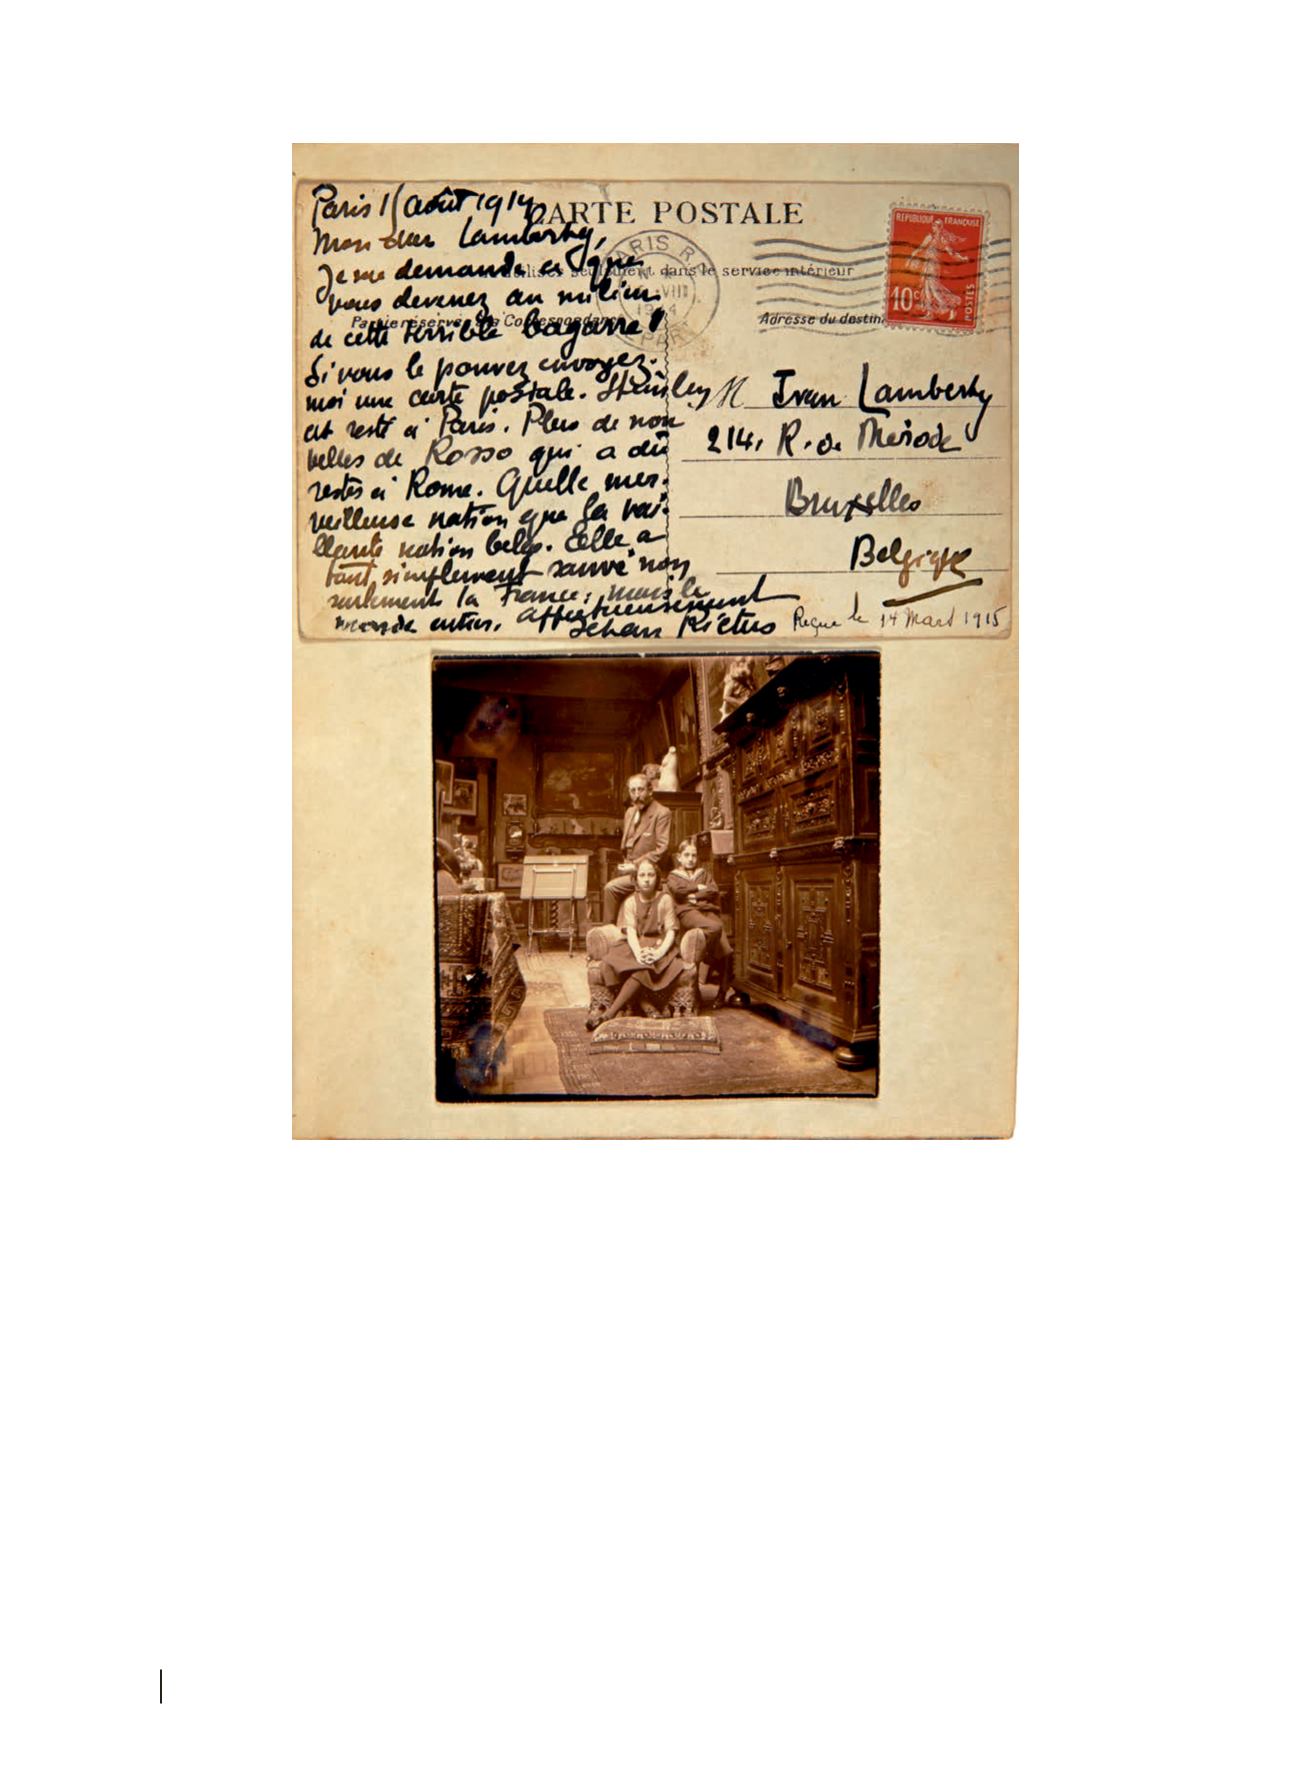 Paris 15 août 1914
CARTE POSTALE
Mon cher Lamberty,
Je me demande ce que
vous devenez au milieu
de cette terrible bagarre!
Si vous le pouvez envoyez-
moi une carte postale. Steinlen
est resté à Paris. Plus de nou
velles de Rosso qui a dû
rester à Rome. Quelle mer-
veilleuse nation que la vai-
llante nation belge. Elle a
tout simplement sauvé non
seulement la France; mais le
monde entier. Affectueusement
Jehan Rictus
utiliser seulement dans le service intérieur
Partie réservée à la Correspondance
Adresse du destin
PARIS R.P.
VIII
DEPART
REPUBLIQUE FRANÇAISE
10c
POSTES
M Ivan Lamberty
214, R. de Mérode
Bruxelles
Belgique
Reçue le 14 Mars 1915